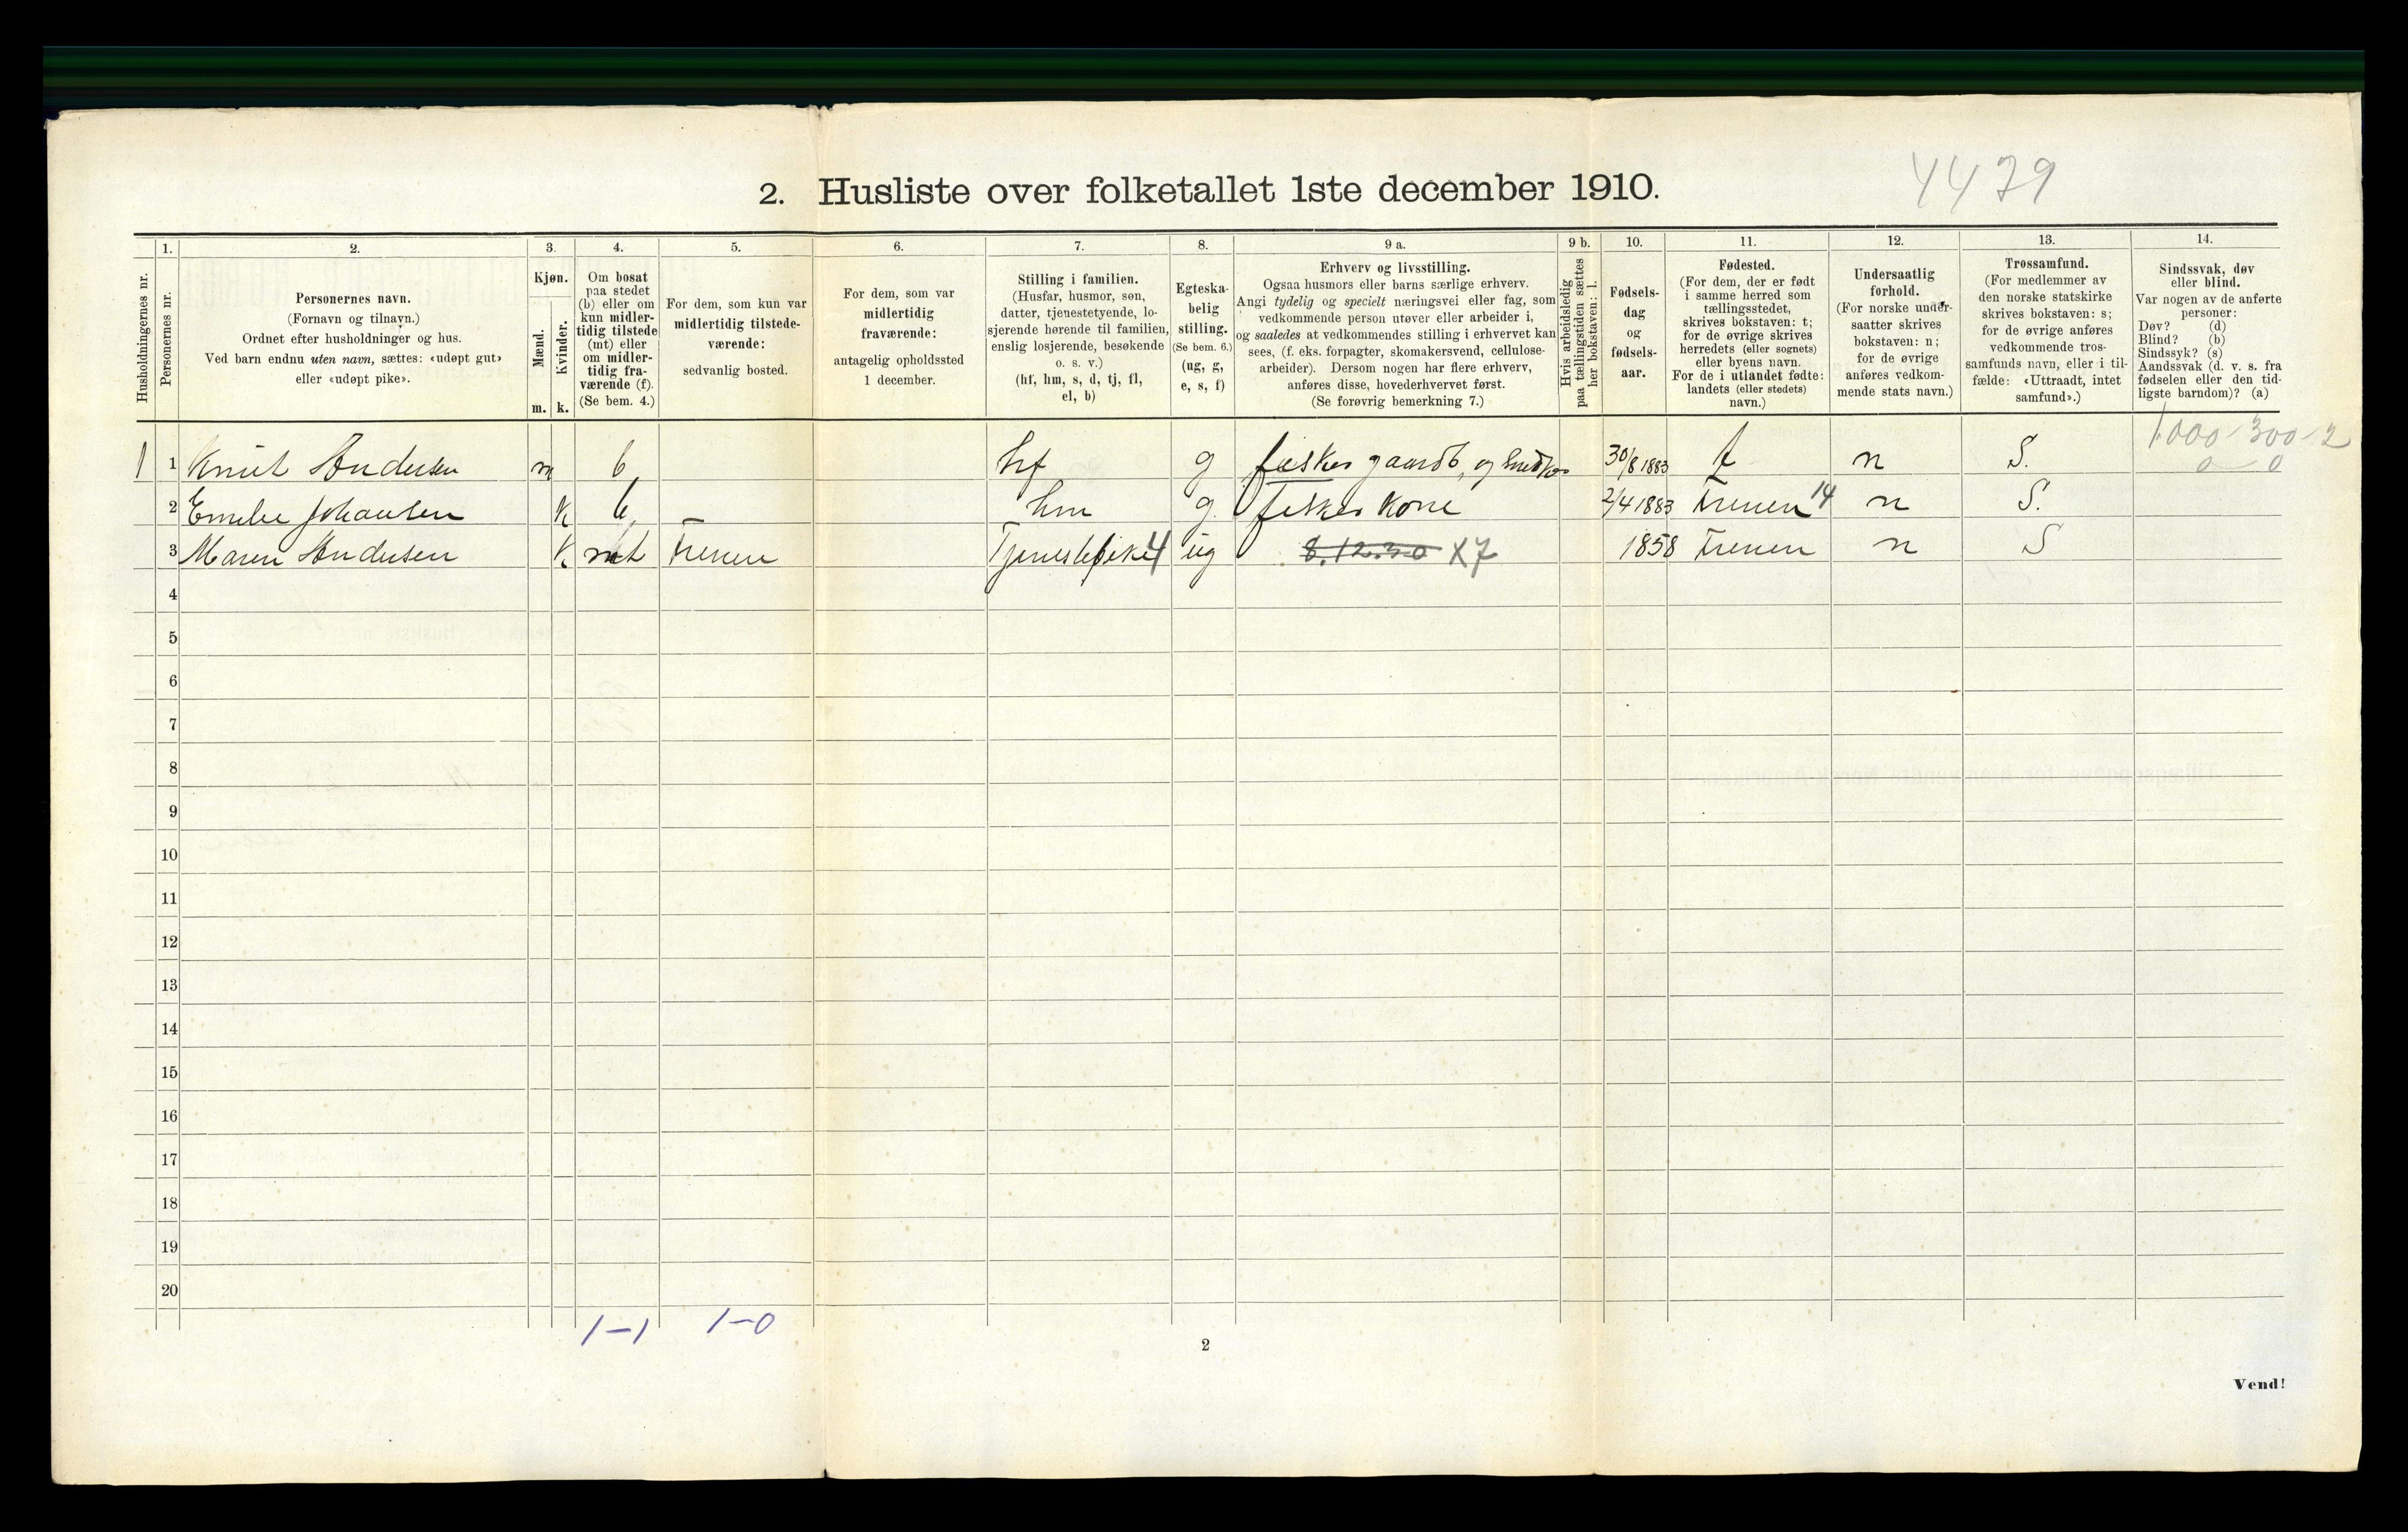 4479
2. Husliste over folketallet 1ste december 1910.
Husholdningernes nr.
1.
Personernes nr.
2.
Personernes navn.
(Fornavn og tilnavn.)
Ordnet efter husholdninger og hus.
Ved barn endnu uten navn, sættes: «udøpt gut»
eller «udøpt pike».
3.
Kjøn.
Mænd.
Kvinder.
m. k.
4.
Om bosat
paa stedet
(b) eller om
kun midler-
tidig tilstede
(mt) eller
om midler-
tidig fra-
værende (f).
(Se bem. 4.)
5.
For dem, som kun var
midlertidig tilstede-
værende:
sedvanlig bosted.
6.
For dem, som var
midlertidig
fraværende:
antagelig opholdssted
1 december.
7.
Stilling i familien.
(Husfar, husmor, søn,
datter, tjenestetyende, lo-
sjerende hørende til familien,
enslig losjerende, besøkende
o. s. v.)
(hf, hm, s, d, tj, fl,
el, b)
8.
Egteska-
belig
stilling.
(Se bem. 6.)
(ug, g,
e, s, f)
9 a.
Erhverv og livsstilling.
Ogsaa husmors eller barns særlige erhverv.
Angi tydelig og specielt næringsvei eller fag, som
vedkommende person utøver eller arbeider i,
og saaledes at vedkommendes stilling i erhvervet kan
sees, (f. eks. forpagter, skomakersvend, cellulose-
arbeider). Dersom nogen har flere erhverv,
anføres disse, hovederhvervet først.
(Se forøvrig bemerkning 7.)
9 b.
Hvis arbeidsledig
paa tællingstiden sættes
her bokstaven: l.
10.
Fødsels-
dag
og
fødsels-
aar.
11.
Fødested.
(For dem, der er født
i samme herred som
tællingsstedet,
skrives bokstaven: t;
for de øvrige skrives
herredets (eller sognets)
eller byens navn.
For de i utlandet fødte:
landets (eller stedets)
navn.)
12.
Undersaatlig
forhold.
(For norske under-
saatter skrives
bokstaven: n;
for de øvrige
anføres vedkom-
mende stats navn.)
13.
Trossamfund.
(For medlemmer av
den norske statskirke
skrives bokstaven: s;
for de øvrige anføres
vedkommende tros-
samfunds navn, eller i til-
fælde: «Uttraadt, intet
samfund».)
14.
Sindssvak, døv
eller blind.
Var nogen av de anførte
personer:
Døv? (d)
Blind? (b)
Sindssyk? (s)
Aandssvak (d. v. s. fra
fødselen eller den tid-
ligste barndom)? (a)
1000-300-2
0-0
1 1 Knut Andersen m b hf g fisker gaardb, og snedker 30/8 1883 t n S.
2 Emelie Johansen K b – hm g. fisker kone 2/4 1883 Trenen 14 n S.
3 Maren Andersen K mt Trenen Tjenestepike 4 ug 8.12.30 X7 1858 Trenen n S
4
5
6
7
8
9
10
11
12
13
14
15
16
17
18
19
20
1-1 1-0
2
Vend!